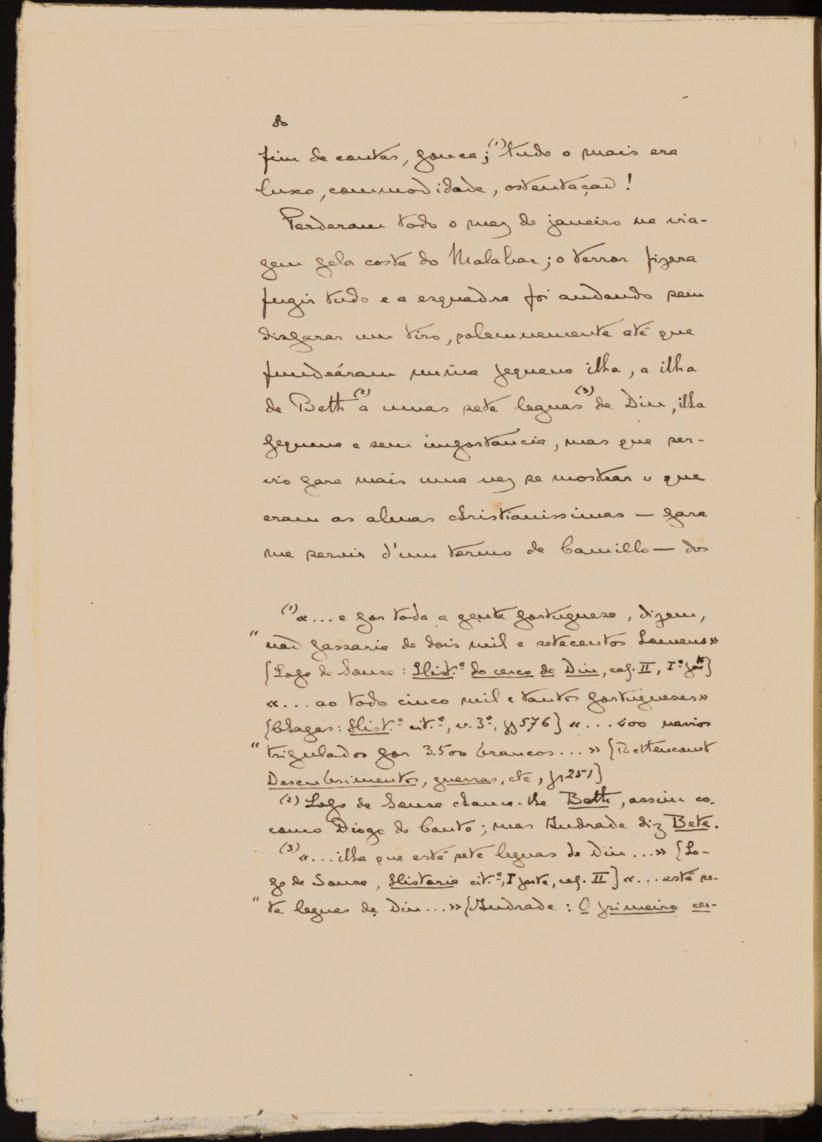 80
fim de contas, pouca;(1) tudo o mais era
luxo, commodidade, ostentação!
Perderam todo o mez de janeiro na via-
gem pela costa do Malabar; o terror fizera
fugir tudo e a esquadra foi andando sem
disparar um tiro, solemnemente até que
fundeáram n'uma pequena ilha, a ilha
de Beth(2) a umas sete leguas(3) de Diu, ilha
pequena e sem importancia, mas que ser-
vio para mais uma vez se mostrar o que
eram as almas christianissimas — para
me servir d'um termo de Camillo — dos
(1) «... e por toda a gente portugueza, dizem,
" não passaria de dois mil e setecentos homens»
[Lopo de Sousa: Hist.ª do cerco de Diu, cap. II, I.ª parte]
«... ao todo cinco mil e tantos portuguezes»
[Chagas: Hist.ª cit.ª, v. 3º, pg 576] «... 400 navios
" tripulados por 3.500 brancos...» [Bettencourt
Descobrimentos, guerras, etc, pg 251]
(2) Lopo de Sousa chama-lhe Beth, assim co-
como Diogo do Couto; mas Andrade diz Bete.
(3) «... ilha que está sete leguas de Diu...» [Lo-
po de Sousa, Historia cit.ª, I parte, cap. II] «... está se-
" te leguas de Diu...» [Andrade: O primeiro cer-